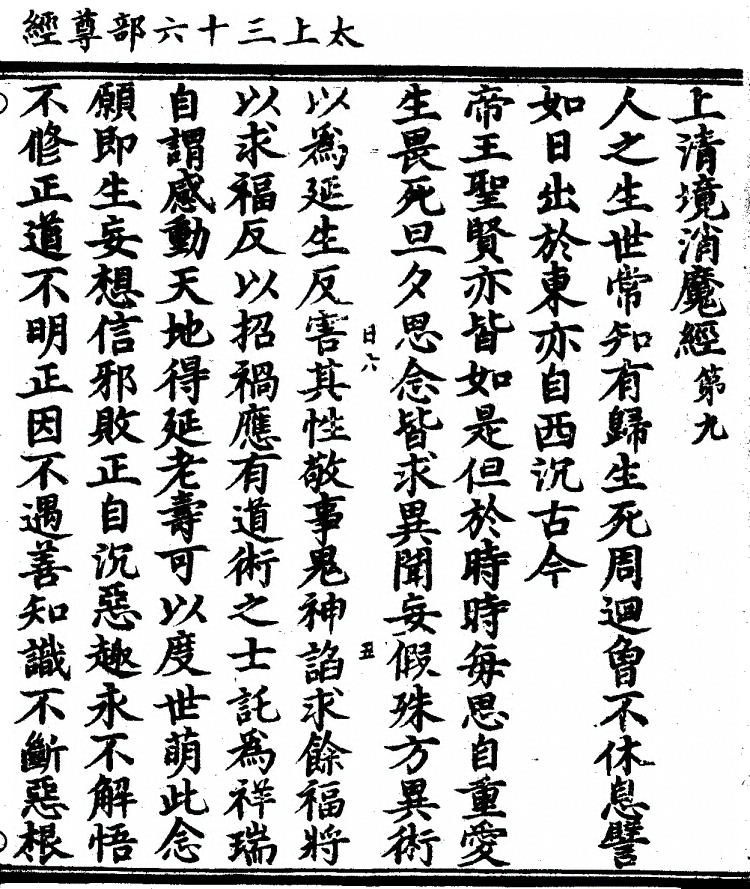 太上三十六部尊經
上清境消魔經第九
人之生世常知有歸生死周迴曾不休息譬
如日出於東亦自西沉古今
帝王聖賢亦皆如是但於時時每思自重愛
生畏死旦夕思念皆求異聞妄假殊方異術
日六
丑
以為延生反害其性敬事鬼神諂求餘福將
以求福反以招禍應有道術之士託為祥瑞
自謂感動天地得延老壽可以度世萌此念
願即生妄想信邪敗正自沉惡趣永不解悟
不修正道不明正因不遇善知識不斷惡根